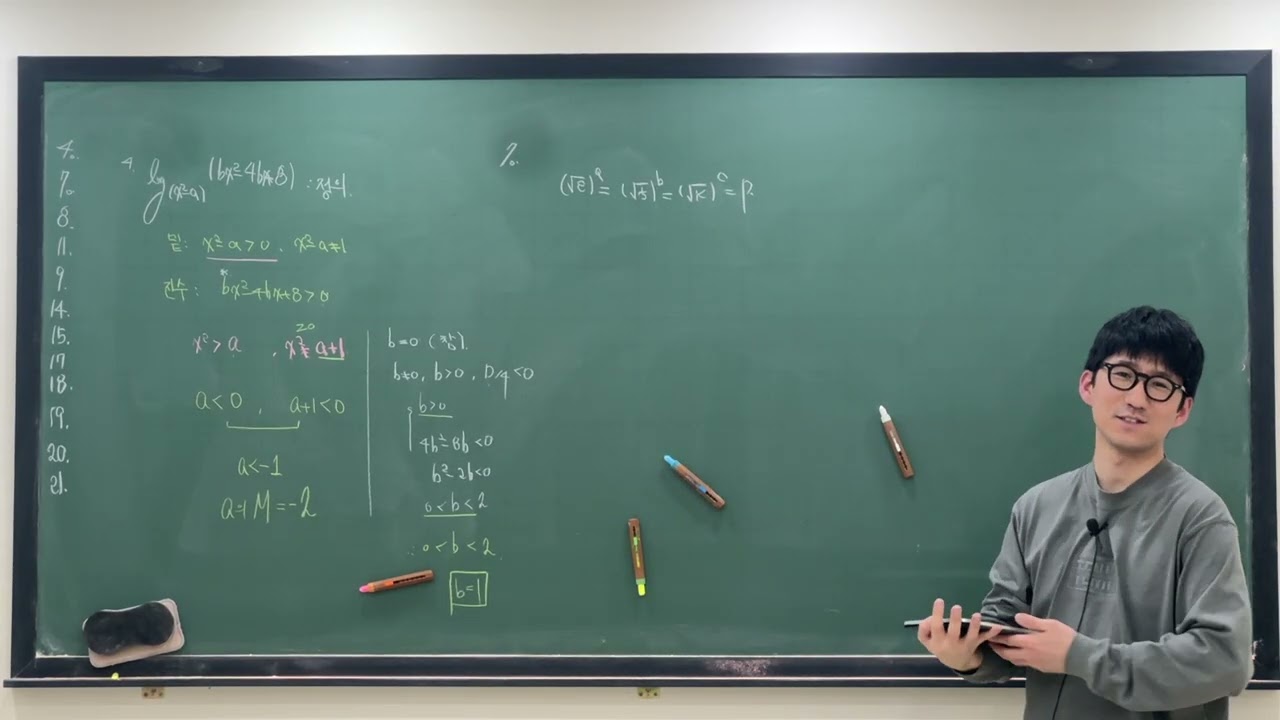 4.
7.
8.
11.
9.
14.
15.
17
18.
19.
20.
21.
4. log_(x²-a) (bx²-4bx+8) : 정의.
밑: x²-a>0, x²-a≠1
진수: bx²-4bx+8>0
x²>a, x²≠a+1
≥0
a<0, a+1<0
a<-1
M=-2
b=0 (참).
b≠0, b>0, D/4<0
b>0
4b²-8b<0
b²-2b<0
0<b<2
∴ 0<b<2
b=1
7.